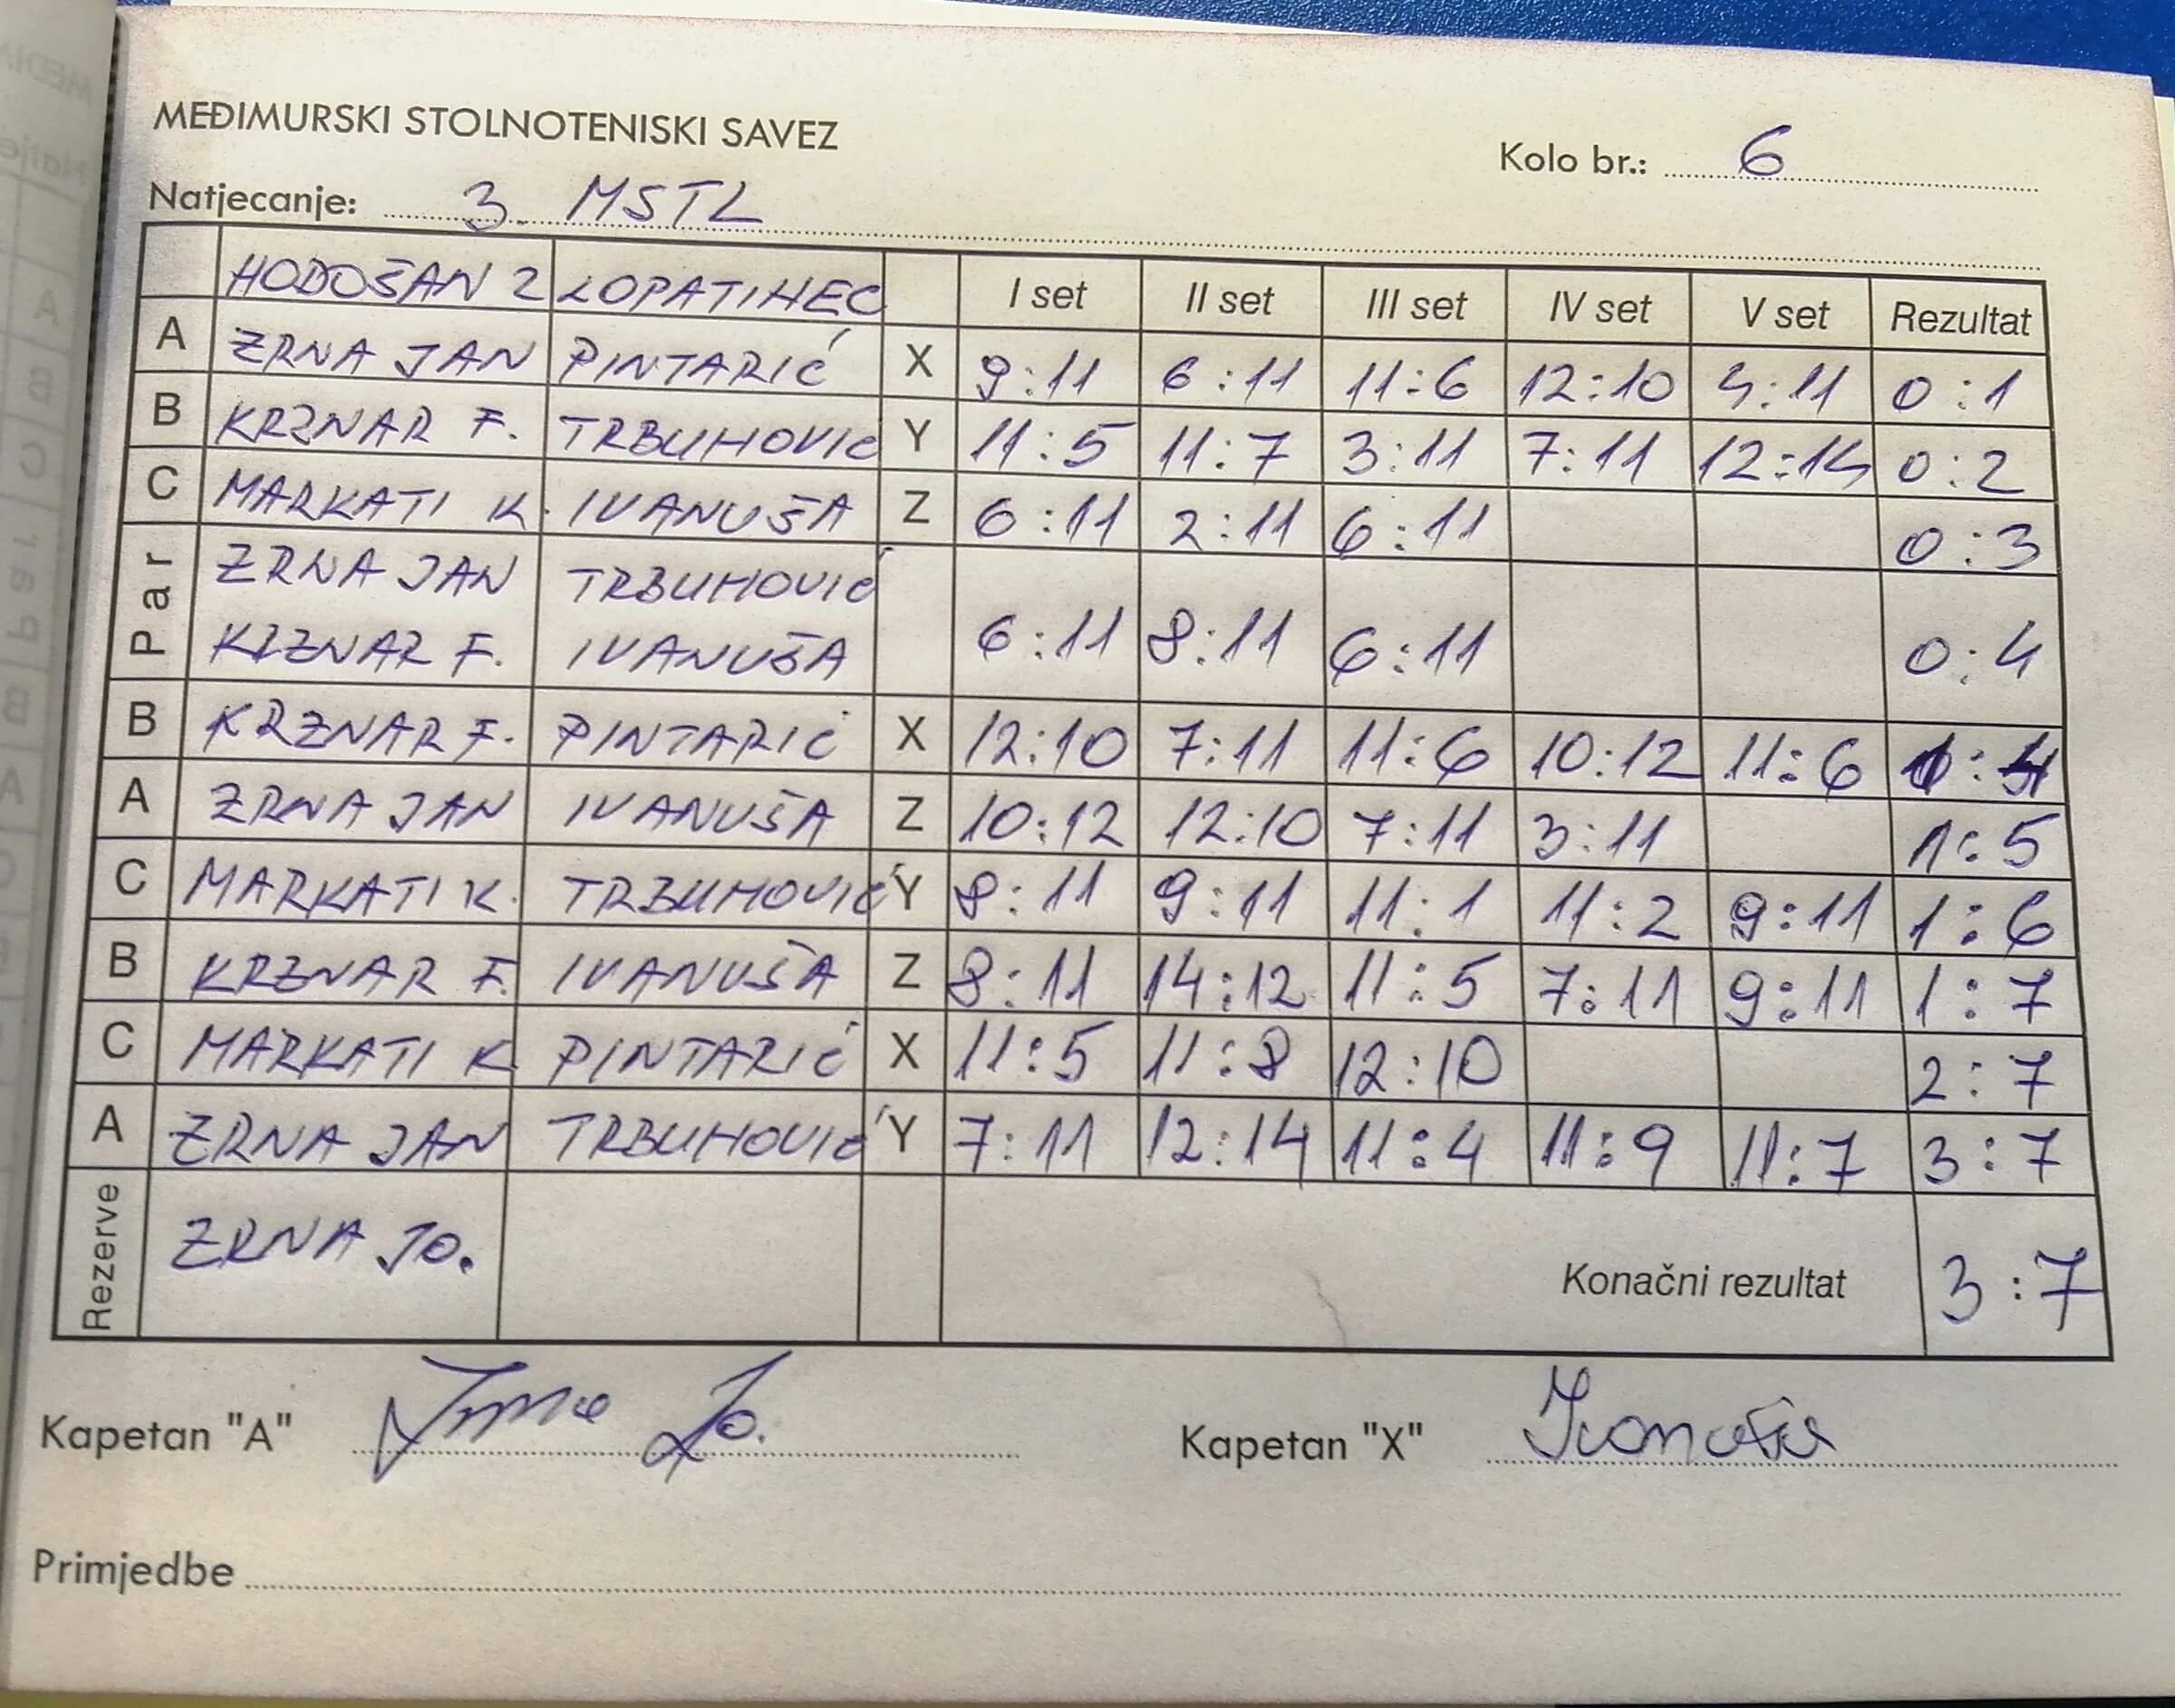 MEĐIMURSKI STOLNOTENISKI SAVEZ
Kolo br.: 6
Natjecanje: 3. MSTL
HODOŠAN 2 LOPATINEC I set II set III set IV set V set Rezultat
A ZRNA JAN PINTARIĆ X 9:11 6:11 11:6 12:10 4:11 0:1
B KRZNAR F. TRBUHOVIĆ Y 11:5 11:7 3:11 7:11 12:14 0:2
C MARKATI K. IVANUŠA Z 6:11 2:11 6:11 0:3
Par ZRNA JAN TRBUHOVIĆ
KRZNAR F. IVANUŠA 6:11 8:11 6:11 0:4
B KRZNAR F. PINTARIĆ X 12:10 7:11 11:6 10:12 11:6 1:4
A ZRNA JAN IVANUŠA Z 10:12 12:10 7:11 3:11 1:5
C MARKATI K. TRBUHOVIĆ Y 8:11 9:11 11:1 11:2 9:11 1:6
B KRZNAR F. IVANUŠA Z 8:11 14:12 11:5 7:11 9:11 1:7
C MARKATI K. PINTARIĆ X 11:5 11:8 12:10 2:7
A ZRNA JAN TRBUHOVIĆ Y 7:11 12:14 11:4 11:9 11:7 3:7
Rezerve ZRNA JO. Konačni rezultat 3:7
Kapetan "A" Zrna Jo. Kapetan "X" Ivanuša
Primjedbe